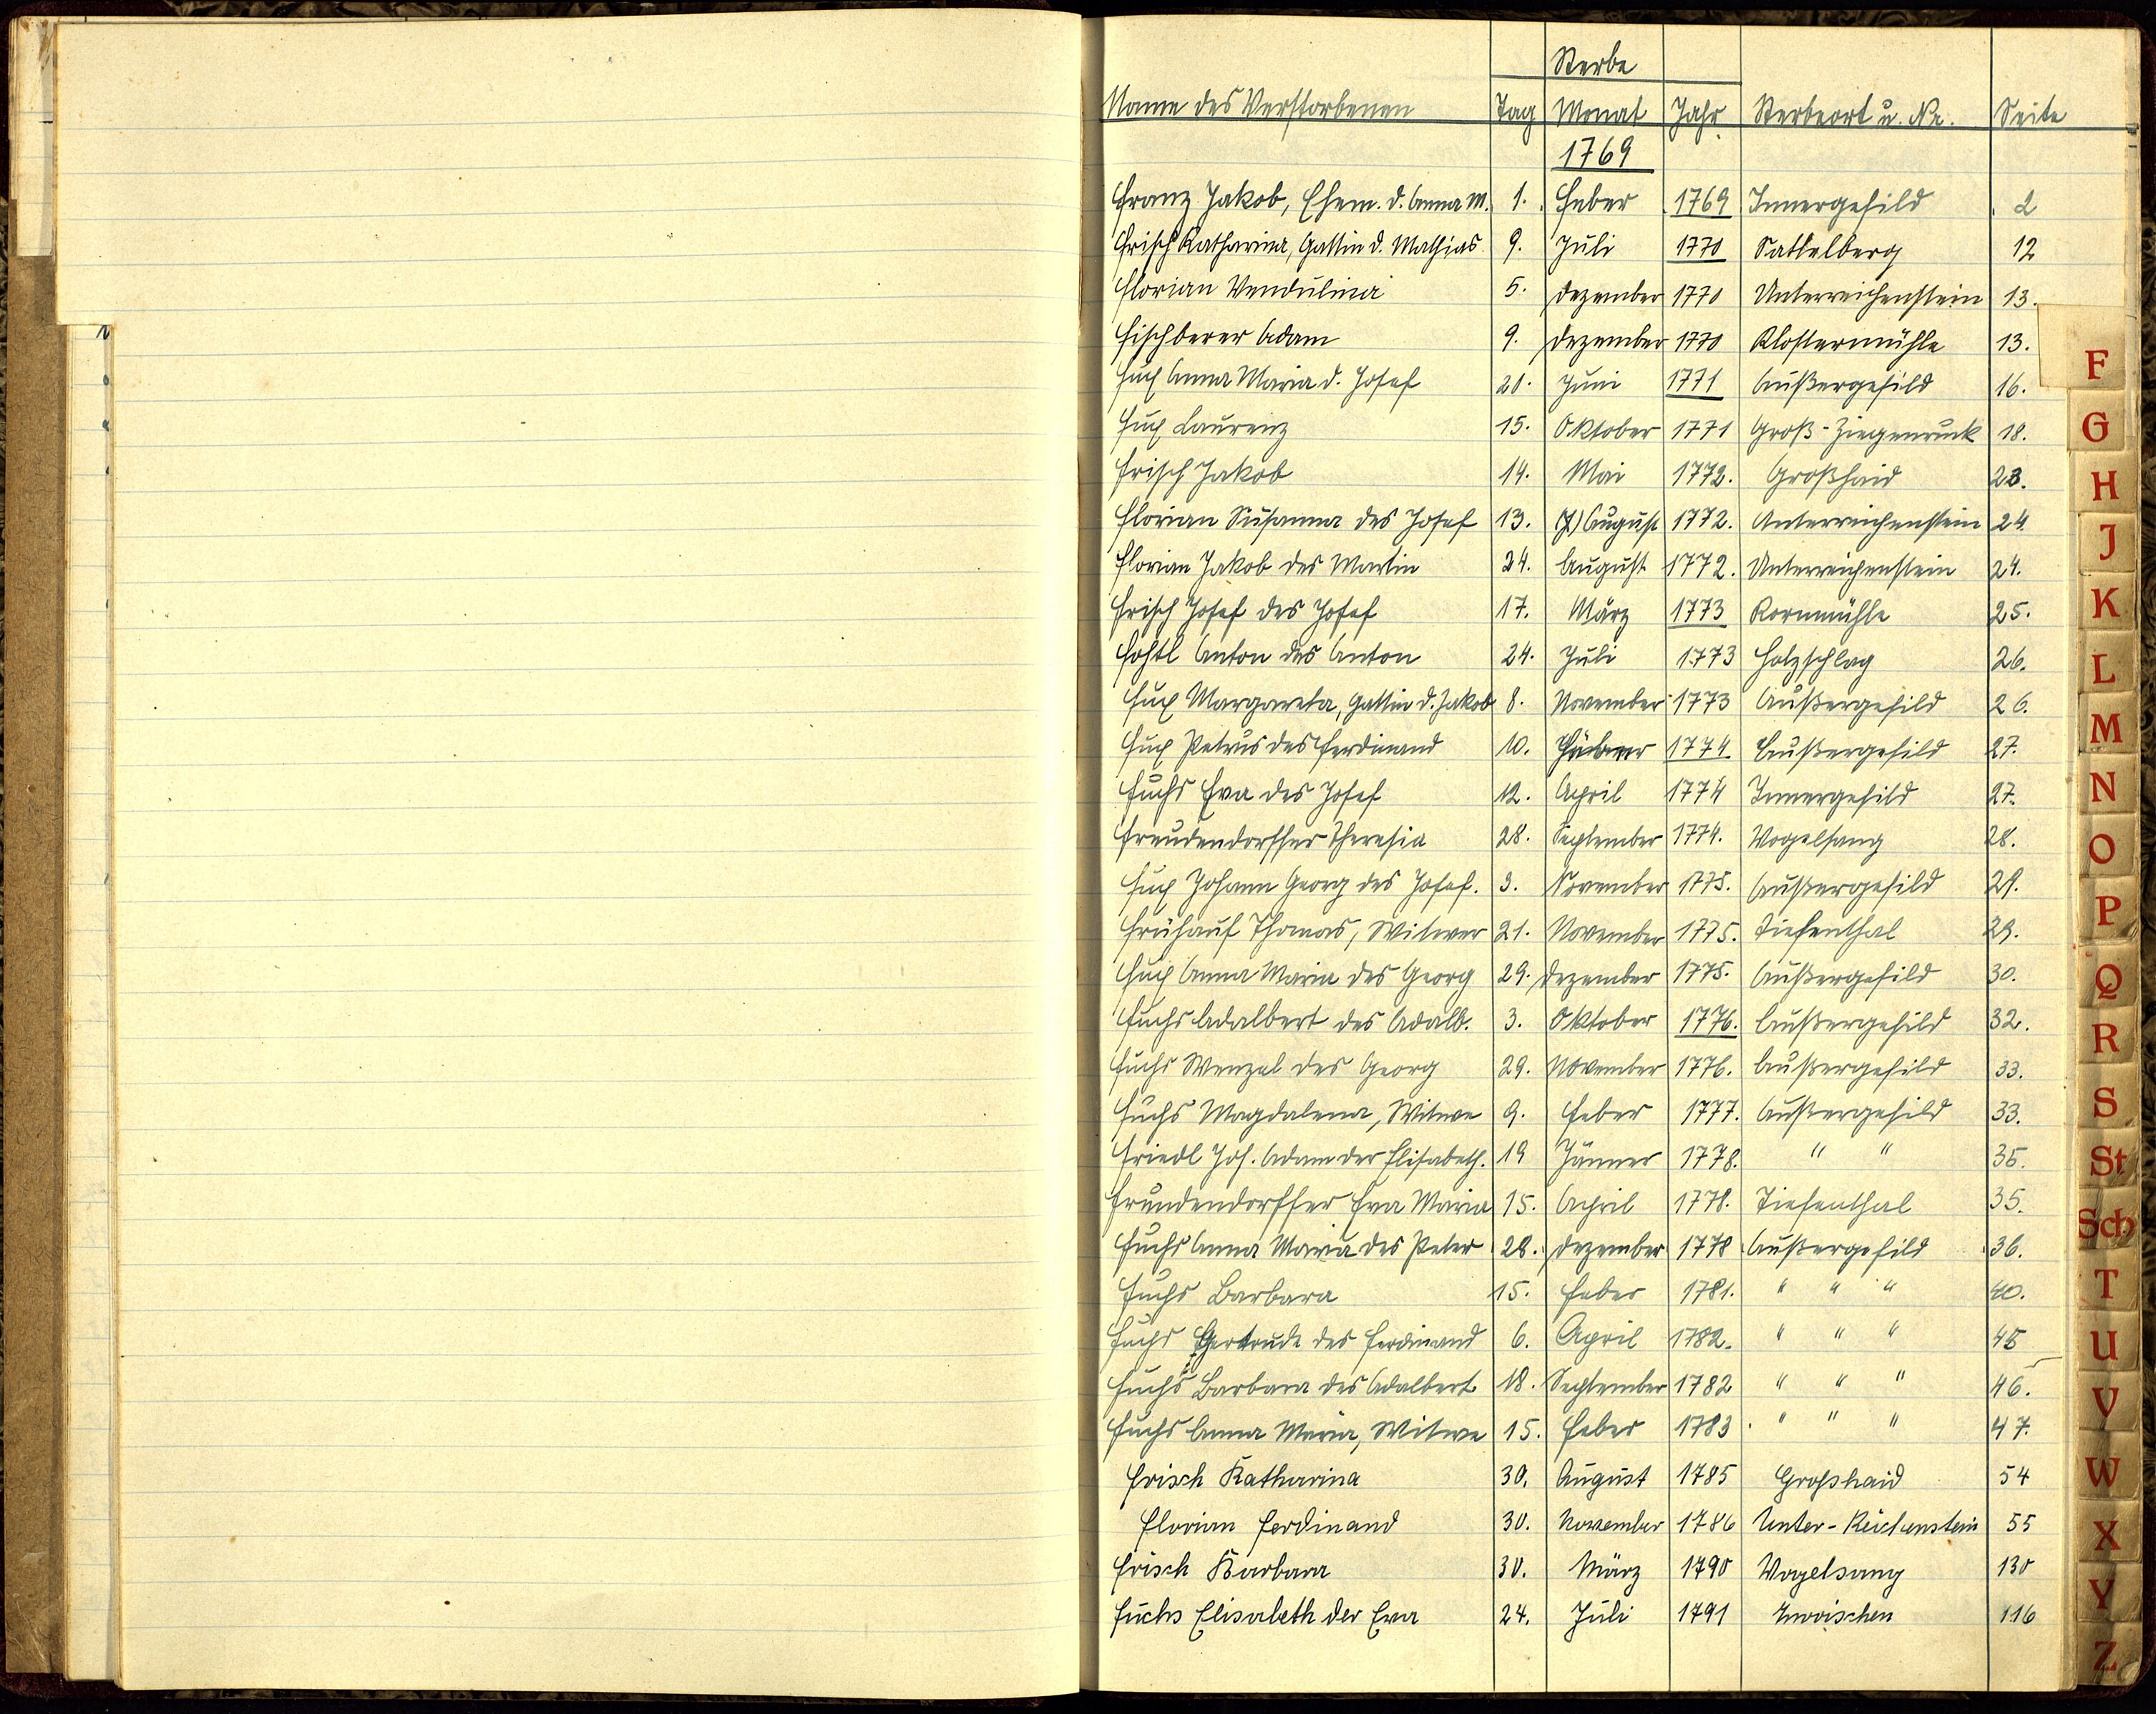 Sterbe
Name des Verstorbenen Tag Monat Jahr Sterbeort u. Nr. Seite
1769
Franz Jakob, Ehem. d. Anna M. 1. Feber 1769 Innergefild 2
Frisch Katharina, Gattin d. Mathias 9. Juli 1770 Sattelberg 12
Florian Wendulina 5. Dezember 1770 Unterreichenstein 13.
Fischberer Adam 9. Dezember 1770 Klostermühle 13.
Fux Anna Maria d. Josef 20. Juni 1771 Außergefild 16.
Fux Laurenz 15. Oktober 1771 Groß-Ziegenruck 18.
Frisch Jakob 14. Mai 1772. Großhaid 23.
Florian Susanna des Josef 13. August 1772. Unterreichenstein 24.
Florian Jakob des Martin 24. August 1772. Unterreichenstein 24.
Frisch Josef des Josef 17. März 1773 Kornmühle 25.
Fohtl Anton des Anton 24. Juli 1773 Holzschlag 26.
Fux Margareta, Gattin d. Jakob 8. November 1773 Außergefild 26.
Fux Petrus des Ferdinand 10. 1774 Außergefild 27.
Fuchs Eva des Josef 12. April 1774 Innergefild 27.
Freudendorffer Theresia 28. September 1774. Vogelsang 28.
Fux Johann Georg des Josef. 3. November 1775. Außergefild 29.
Frühauf Thomas, Witwer 21. November 1775. Tiefenthal 29.
Fux Anna Maria des Georg 29. Dezember 1775. Außergefild 30.
Fuchs Adalbert des Adalb. 3. Oktober 1776. Außergefild 32.
Fuchs Wenzel des Georg 29. November 1776. Außergefild 33.
Fuchs Magdalena, Witwe 9. Feber 1777. Außergefild 33.
Friedl Joh. Adam der Elisabeth. 19 Jänner 1778. " " 35.
Freundendorffer Eva Maria 15. April 1778. Tiefenthal 35.
Fuchs Anna Maria des Peter 28. Dezember 1778 Außergefild 36.
Fuchs Barbara 15. Feber 1781. " " " 40.
Fuchs Gertrude des Ferdinand 6. April 1782. " " " 45
Fuchs Barbara des Adalbert 18. September 1782 " " " 46.
Fuchs Anna Maria, Witwe 15. Feber 1783 " " " 47.
Frisch Katharina 30. August 1785 Grosshaid 54
Florian Ferdinand 30. November 1786 Unter-Reichenstein 55
Frisch Barbara 30. März 1790 Vogelsang 130
Fuchs Elisabeth der Eva 24. Juli 1791 Zwoischen 116
F
G
H
J
K
L
M
N
O
P
Q
R
S
St
Sch
T
U
V
W
X
Y
Z